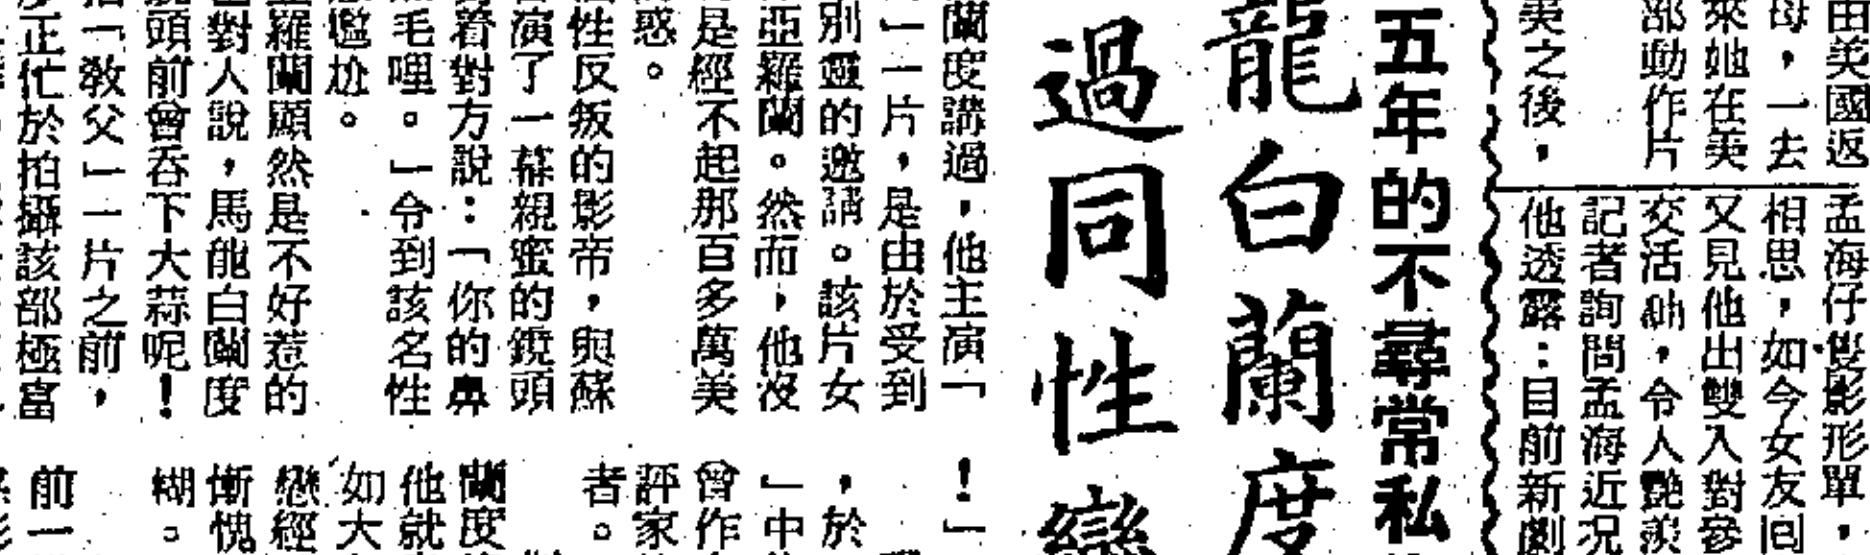 由美國返
母，一去
來她在美
部動作片
美之後，
孟海仔隻影形單，
相思，如今女友回
又見他出雙入對參
交活動，令人艷羨
記者詢問孟海近況
他透露：目前新劇
五年的不尋常私
龍白蘭度
過同性戀
蘭度講過，他主演「
」一片，是由於受到
別靈的邀請。該片女
亞羅蘭。然而，他沒
是經不起那百多萬美
惑。
性反叛的影帝，與蘇
演了一幕親蜜的鏡頭
着對方說：「你的鼻
毛哩。」令到該名性
尷尬。
羅蘭顯然是不好惹的
對人說，馬龍白蘭度
頭前曾吞下大蒜呢！
「教父」一片之前，
正忙於拍攝該部極富
！」
，於
」中
曾作
評家
者。
蘭度
他就
如大
戀經
慚愧
糊。
前一